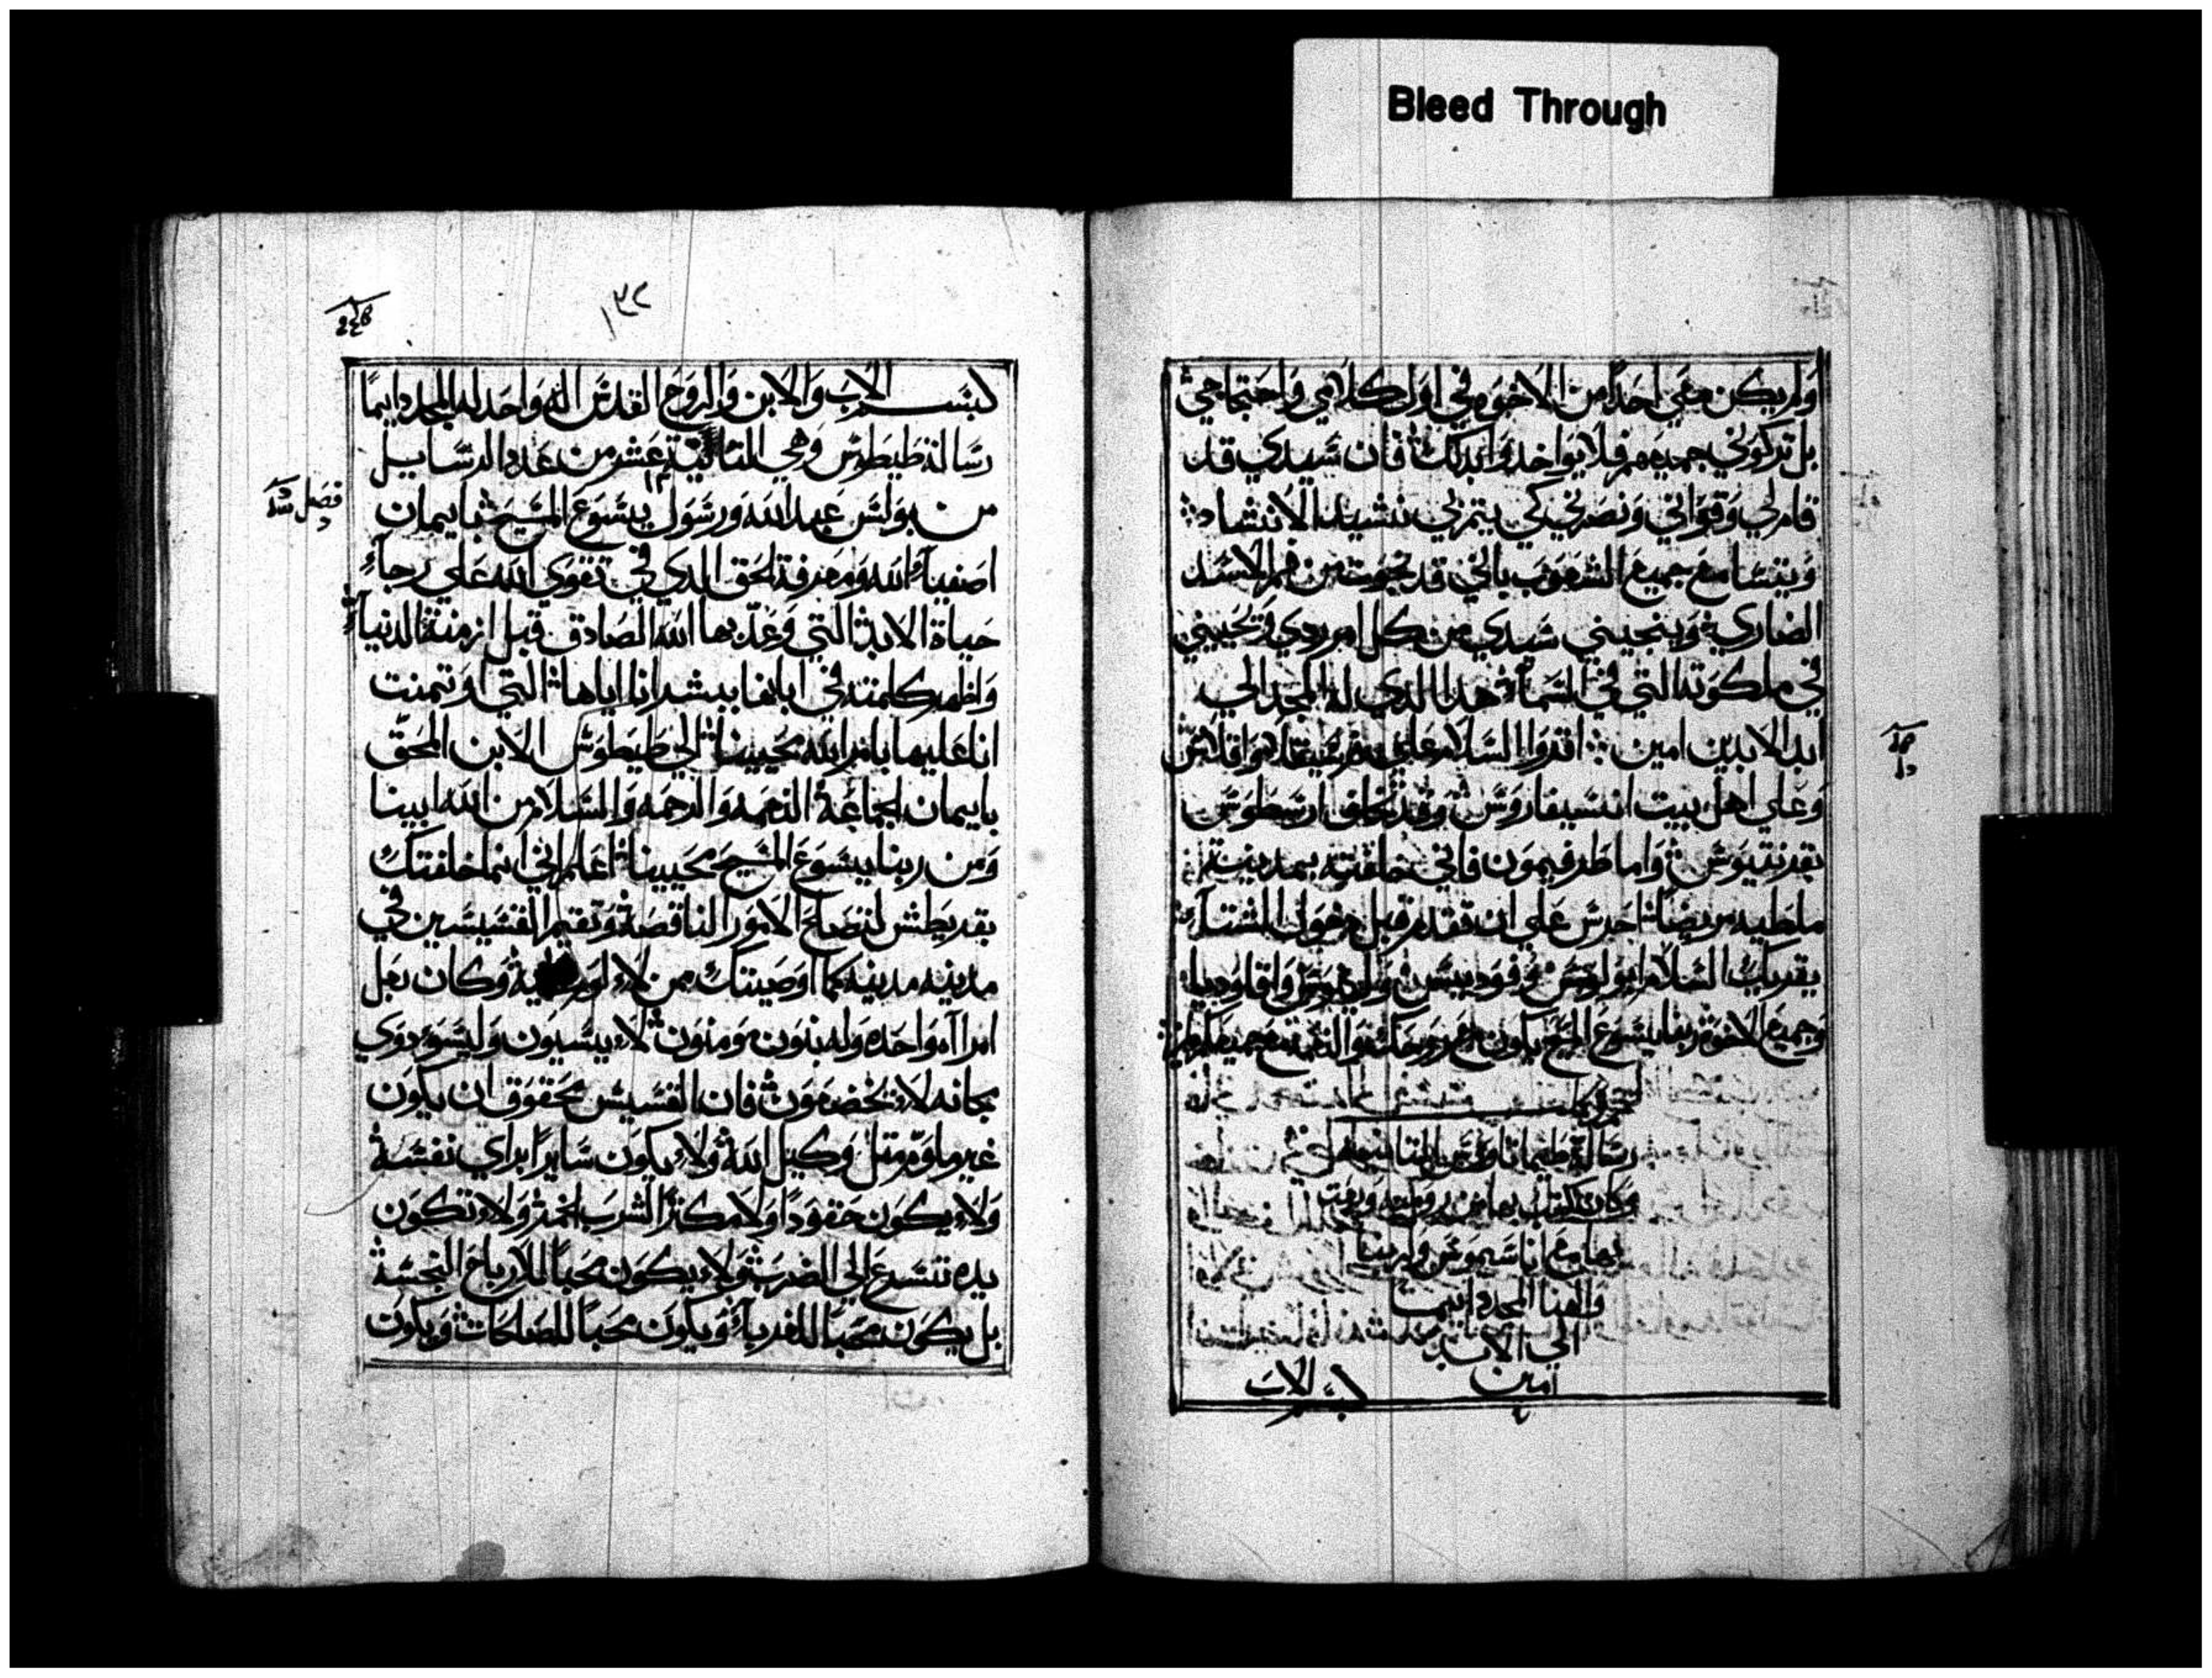 Bleed Through
ولم يكن معي احدًا من الاخوه في اول كلامي واحتجاجي
بل تركوني جميعهم فلا يواخدوا بدلك فان سيدي قد
قام لي وقواني ونصرني كي يتم بي تشييد الانشاد
ويتسامع جميع الشعوب باني قد نجوت من فم الاسد
الضاري وينجيني سيدي من كل امر ردي ويحييني
في ملكوته التي في السمآء هدا الدي له المجد الي
ابد الابدين امين اقروا السلام علي فرسيقلا واقلاس
وعلي اهل بيت انسيفاروس وقد تخلف ارسطوس
بقرنتيوس واما طرفيمون فاني خلفته بمدينة
ملطيه مريضًا احرس علي ان تقدم قبل دخول الشتآء
يقريك السلام ابولوس وفوديس ولينوس واقلوديا
وجميع الاخوه ربنا يسوع المسيح يكون مع روحك والنعمة مع جميعكم امين
رسالة طيماتاوس التانيه
وكان كتب بها من روميه وبعت
بها مع اناسيموس ولربنا
والهنا المجد دايما
الي الابد
امين
بسم الاب
١٣٢
بسم الاب والابن والروح القدس اله واحد له المجد دايمًا
رسالة طيطوس وهي التالتة عشر من عدد الرسايل
١٣
من بولس عبد الله ورسول يسوع المسيح بايمان
فصل
اصفيآء الله ومعرفة الحق الدي في تقوي الله علي رجآء
حياة الابد التي وعد بها الله الصادق قبل ازمنة الدنيآء
واظهر كلمته في ابانها ببشرانا اياها التي اوتمنت
انا عليها بامر الله محيينا الي طيطوس الابن المحق
بايمان الجماعة النعمه والرحمه والسلام من الله ابينا
ومن ربنا يسوع المسيح محيينا اعلم اني انما خلفتك
بقريطش لتصلح الامور الناقصة وتقيم القسيسين في
مدينه مدينه كما اوصيتك من لا وكان رجل
امراه واحده وله بنون مومنون لا يسبون وليسو دوي
مجانه لا يخضعون فان القسيس محقوق ان يكون
غير ملوم متل وكيل الله ولا يكون سايرًا براي نفسة
ولا يكون حقودًا ولا مكترًا لشرب الخمر ولا تكون
يده تسرع الي الضرب ولا يكون محبًا للارباح النجسة
بل يكون محبًا للغربآء ويكون محبًا للصالحات ويكون